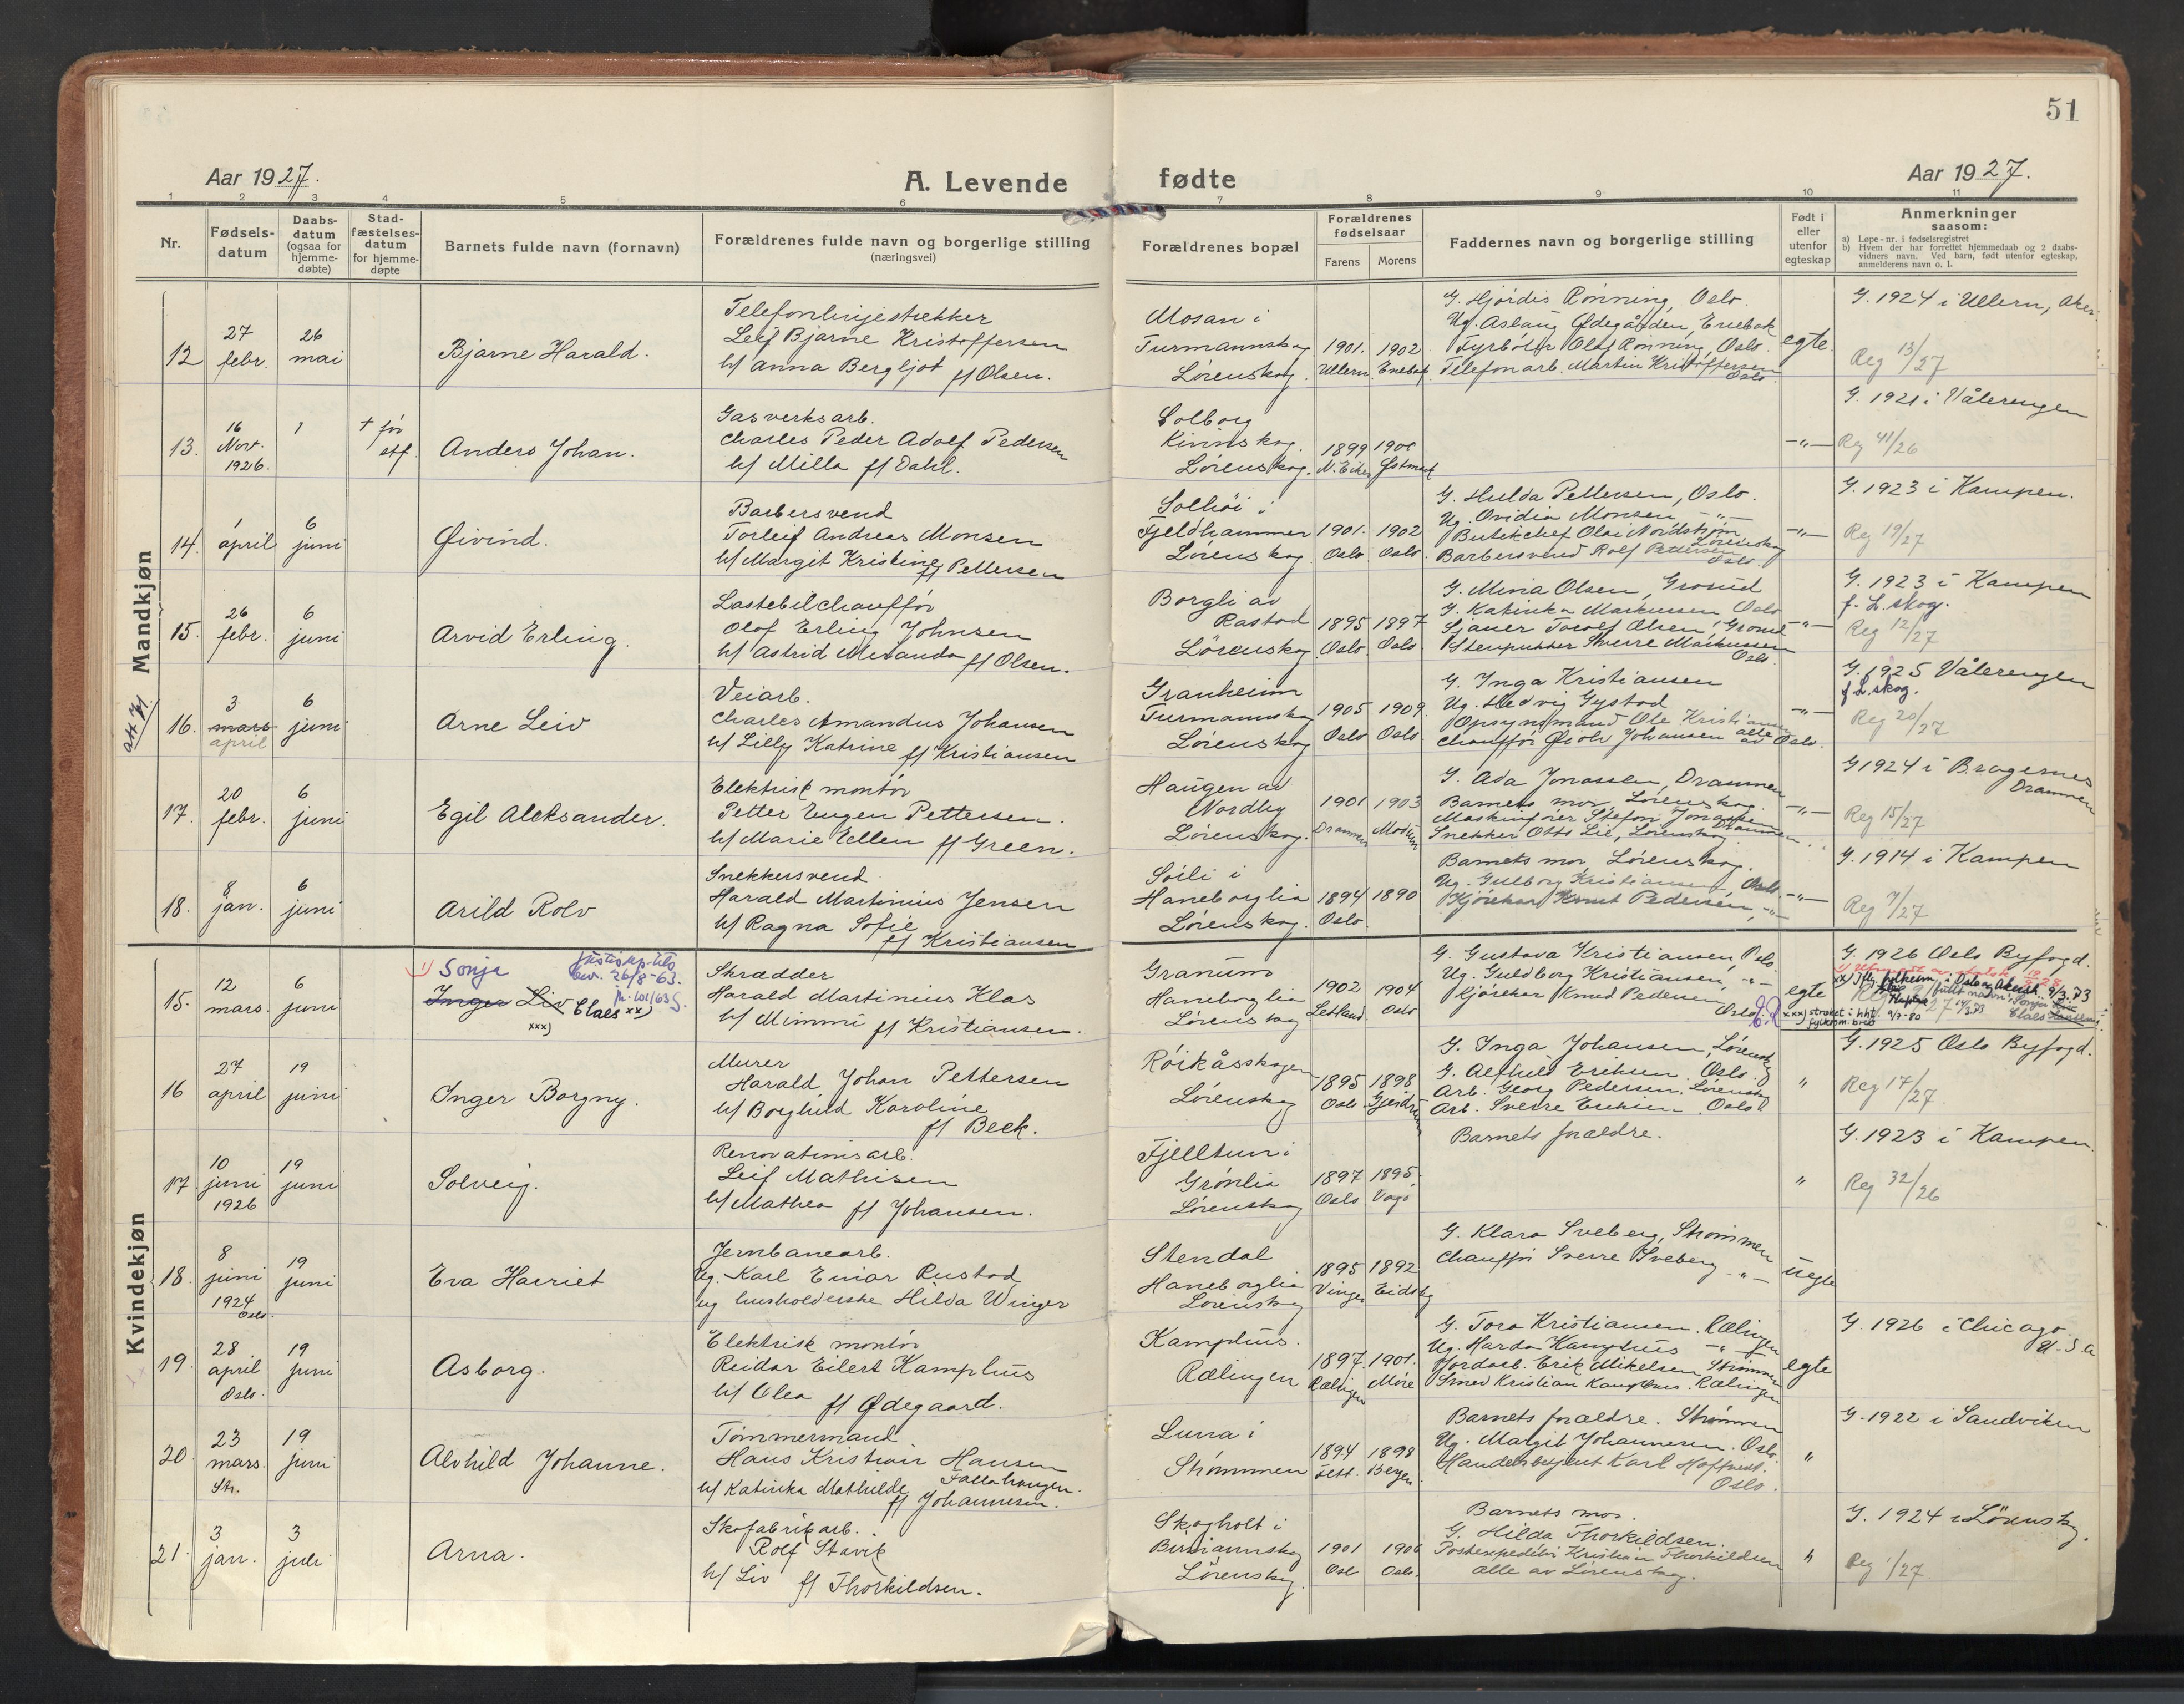 51
Aar 1927.
A. Levende fødte
Aar 1927.
1 2 3 4 5 6 7 8 9 10 11
Nr.
Fødsels-
datum
Daabs-
datum
(ogsaa for
hjemme-
døbte)
Stad-
fæstelses-
datum
for hjemme-
døpte
Barnets fulde navn (fornavn)
Forældrenes fulde navn og borgerlige stilling
(næringsvei)
Forældrenes bopæl
Forældrenes
fødselsaar
Farens
Morens
Faddernes navn og borgerlige stilling
Født i
eller
utenfor
egteskap
Anmerkninger
saasom:
a) Løpe-nr. i fødselsregistret
b) Hvem der har forrettet hjemmedaab og 2 daabs-
vidners navn. Ved barn, født utenfor egteskap,
anmelderens navn o. l.
Mandkjøn
12
27
febr.
26
mai
Bjarne Harald.
Telefonlinjestrekker
Leif Bjarne Kristoffersen
h/ Anna Bergljot f/ Olsen.
Mosan i
Turmannskog
Lørenskog.
1901. 1902
Ullern. Enebak.
G. Hjørdis Rønning, Oslo.
Ug. Aslaug Ødegården, Enebak
Fyrbøter Olaf Rønning, Oslo.
Telefonarb. Martin Kristoffersen
Oslo.
egte.
G. 1924 i Ullern, Aker.
Reg 13/27
13.
16
Nov.
1926.
1
+ før
stf.
Anders Johan.
Gasverksarb.
Charles Peder Adolf Pedersen
h/ Milla f/ Dahl.
Solborg
Kinnskog.
Lørenskog.
1899 1900
N. Eiker Østmark
-"-
G. 1921 i Vålerengen
Reg 41/26
14.
1
april
6
juni
Øivind.
Barbersvend
Torleif Andreas Monsen
h/ Margit Kristine f/ Pettersen
Solhøi i
Fjeldhammer
Lørenskog
1901. 1902
Oslo. Oslo.
G. Hulda Pettersen, Oslo.
Ug. Ovidia Monsen -"-
Butikchef Olai Nordstrøm,
Lørenskog
Barbersvend Rolf Pettersen
Oslo.
-"-
G. 1923 i Kampen.
Reg 19/27
15.
26
febr.
6
juni
Arvid Erling.
Lastebilchauffør
Olaf Erling Johnsen
h/ Astrid Meranda f/ Olsen.
Borgli av
Rastad
Lørenskog
1895 1897
Oslo. Oslo.
G. Mina Olsen, Grorud
G. Katinka Markussen Oslo
Sjauer Toralf Olsen, Grorud
Stenpukker Sverre Markussen
Oslo.
-"-
G. 1923 i Kampen
f. L.skog.
Reg 12/27
att. f/.
16.
3
mars
april
6
juni
Arne Leiv
Veiarb.
Charles Amandus Johansen
h/ Lilly Katrine f/ Kristiansen
Granheim
Turmannskog
Lørenskog
1905 1909.
Oslo Oslo.
G. Inga Kristiansen
Ug. Hedvig Gystad
Opsynsmand Ole Kristiansen
alle
av Oslo.
-"-
G. 1925 Vålerengen
f L.skog.
Reg 20/27
17.
20
febr.
6
juni
Egil Aleksander.
Elektrisk montør
Petter Eugen Pettersen.
h/ Marie Ellen f/ Green.
Haugen av
Nordby
Lørenskog.
1901 1903
Drammen Modum
G. Ada Jonassen, Drammen
Barnets mor, Lørenskog.
Maskinfører Stefan Jonassen
Drammen.
Snekker Otto Lie, Lørenskog
-"-
G 1924 i Bragernes
Drammen
Reg 15/27
18.
8
jan.
6
juni
Arild Rolv
Snekkersvend
Harald Martinius Jensen
h/ Ragna Sofie
f/ Kristiansen
Solli i
Haneborglia
Lørenskog.
1894 1890
Oslo.
Barnets mor, Lørenskog.
Ug. Gulborg Kristiansen, Oslo.
Kjørekar Knut Pedersen, -"-
-"-
G. 1914 i Kampen
Reg 7/27
Kvindekjøn
15.
12
mars.
6
juni
1) Sonja
Inger Liv Claes xx)
xxx)
bev. 26/8-63.
Skrædder
Harald Martinius Klas
h/ Mimmi f/ Kristiansen.
Granumo
Haneborglia
Lørenskog
1902 1904
Letland. Oslo
G. Gustava Kristiansen, Oslo.
Ug. Guldborg Kristiansen, -"-
Kjørekar Knud Pedersen
Oslo
egte
G. 1926 Oslo Byfogd.
xx) flg. fylkesm. i Oslo og Akersh. 9/3.73
xxx) strøket i hht. 9/7-80
fylkesm. brev
16
27
april
19
juni
Inger Borgny.
Murer
Harald Johan Pettersen
h/ Borghild Karoline
f/ Beck.
Røikåsskogen
Lørenskog
1895 1898
Oslo. Gjerdrum
G. Inga Johansen, Lørenskog
G. Alfhild Eriksen. Oslo.
Arb. Georg Pedersen. Lørenskog
Arb. Sverre Eriksen. Oslo.
"
G. 1925 Oslo Byfogd.
Reg 17/27
17.
10
juni
1926
19
juni
Solveig.
Renovationsarb.
Leif Mathisen
h/ Mathea f/ Johansen.
Fjelltun i
Grønlia
Lørenskog
1897 1895.
Oslo Vagø
Barnets forældre.
"
G. 1923 i Kampen.
Reg 32/26
18.
8
juni
1924
Oslo.
19
juni
Eva Harriet
Jernbanearb.
Ug. Karl Einar Rustad
ug husholderske Hilda Winger
Stendal
Haneborglia
Lørenskog
1895 1892
Vinger Eidskog
G. Klara Sveberg, Strømmen
Chauffør Sverre Sveberg -"-
uegte
19.
28
april
Oslo.
19
juni
Asborg.
Elektrisk montør
Reidar Eilert Kamphus
h/ Olea f/ Ødegaard.
Kamphus.
Rælingen
1897. 1901.
Rælingen Møre
G. Tora Kristiansen. Rælingen
Ug. Harda Kamphus -"-
Jordarb. Erik Mikelsen Strømmen
Smed Kristian Kamphus. Rælingen
egte
G. 1926 i Chicago.
U. S. A
20.
23
mars.
Str.
19
juni
Alvhild Johanne.
Tømmermand
Hans Kristian Hansen
Fallahaugen.
h/ Katinka Mathilde f/ Johannesen.
Lurra i
Strømmen
1894 1898
Fett. Bergen.
Barnets forældre. Strømmen
Ug. Margit Johannesen. Oslo.
Handelsbetjent Karl
Oslo.
"
G. 1922 i Sandviken
21.
3
jan.
3
juli
Arna.
Skofabrikarb.
Rolf Stavik
h/ Liv f/ Thorkildsen.
Skogholt i
Lørenskog.
1901 1906
Oslo Oslo.
Barnets mor.
G. Hilda Thorkildsen.
Postexpeditør Kristian Thorkildsen
alle av Lørenskog.
"
G. 1924 i Lørenskog.
Reg 1/27